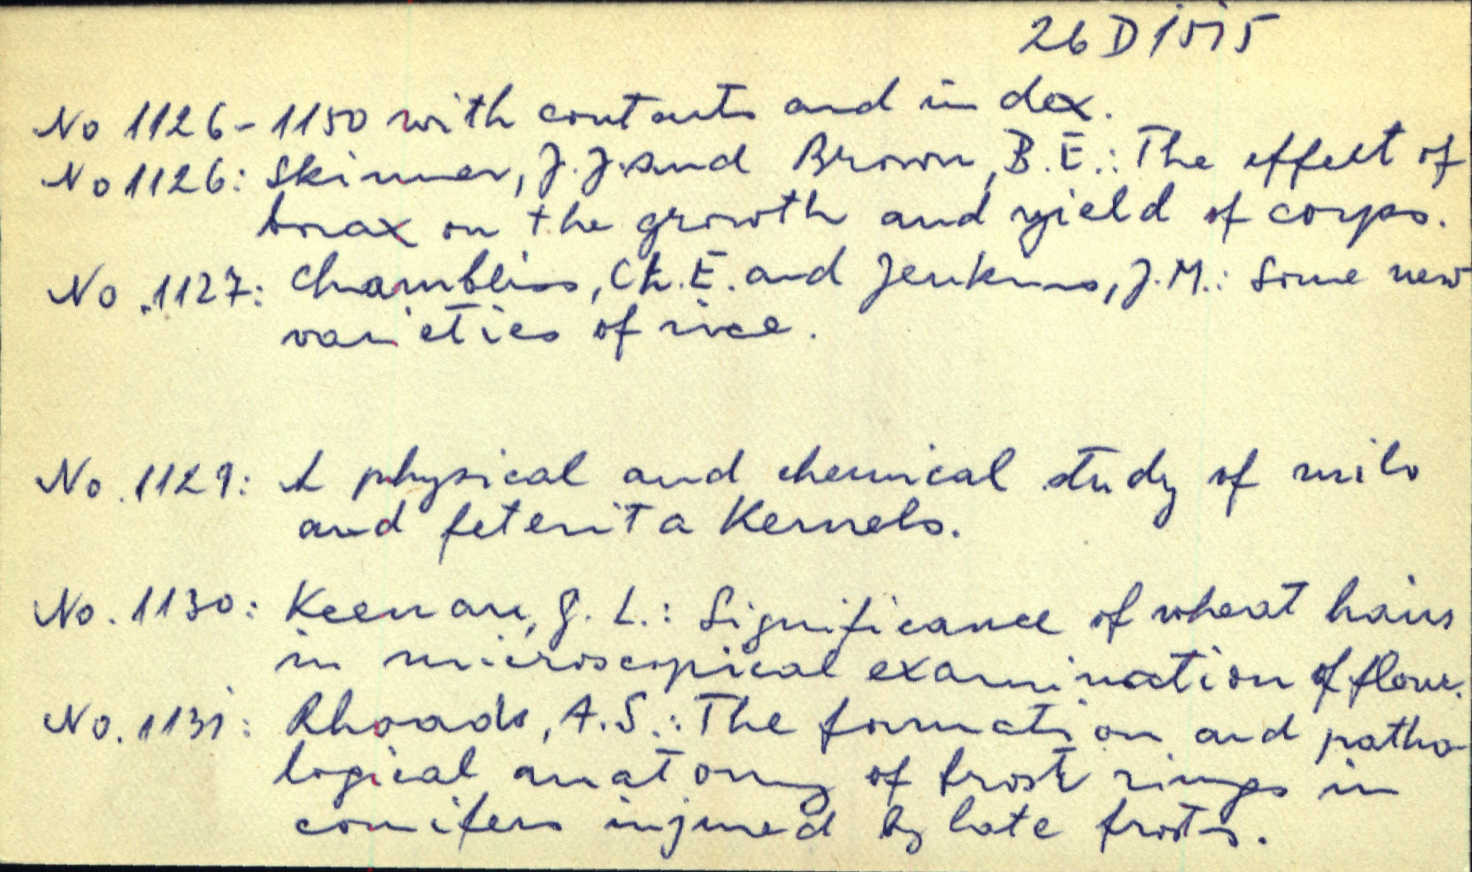 26 D 1515
No 1126-1150 with contents and index.
No 1126: Skinner, J.J. and Brown, B.E.: The effect of
borax on the growth and yield of corps.
No. 1127: Chambliss, Ch. E. and Jenkins, J.M.: Some new
varieties of rice.
No. 1129: A physical and chemical study of milo
and feterita Kernels.
No. 1130: Keenan, G. L.: Significance of wheat hairs
in microscopical examination of flour.
No. 1131: Rhoads, A.S.: The formation and patho-
logical anatomy of frost rings in
conifers injured by late frosts.